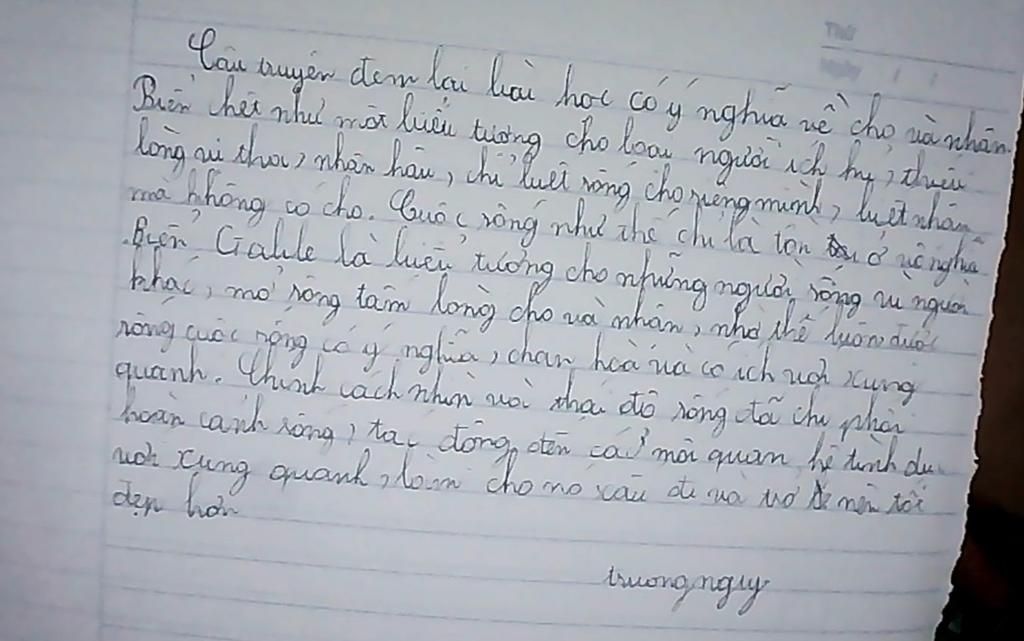 Thứ
Ngày / /
Câu truyện đem lại bài học có ý nghĩa về cho và nhận.
Biển chết như một biểu tượng cho loại người ích kỷ, thiếu
lòng vị tha, nhân hậu, chỉ biết sống cho riêng mình, biết nhận
mà không có cho. Cuộc sống như thế chỉ là tồn ở vô nghĩa
Biển Galile là biểu tượng cho những người sống vì người
khác, mở rộng tấm lòng cho và nhận, nhờ thế luôn được
sống cuộc sống có ý nghĩa, chan hoà và có ích với xung
quanh. Chính cách nhìn và thái độ sống đã chi phối
hoàn cảnh sống, tác động đến cả mối quan hệ tình
với xung quanh, làm cho nó xấu đi và trở nên tốt
đẹp hơn
truongnguy